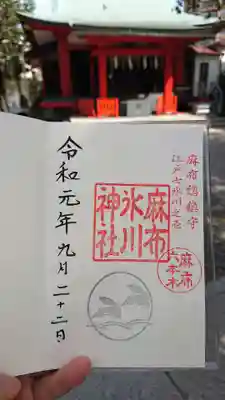 麻布總鎮守
江戸七氷川之壱
麻布
氷川
神社
麻布
六本木
令和元年九月二十二日